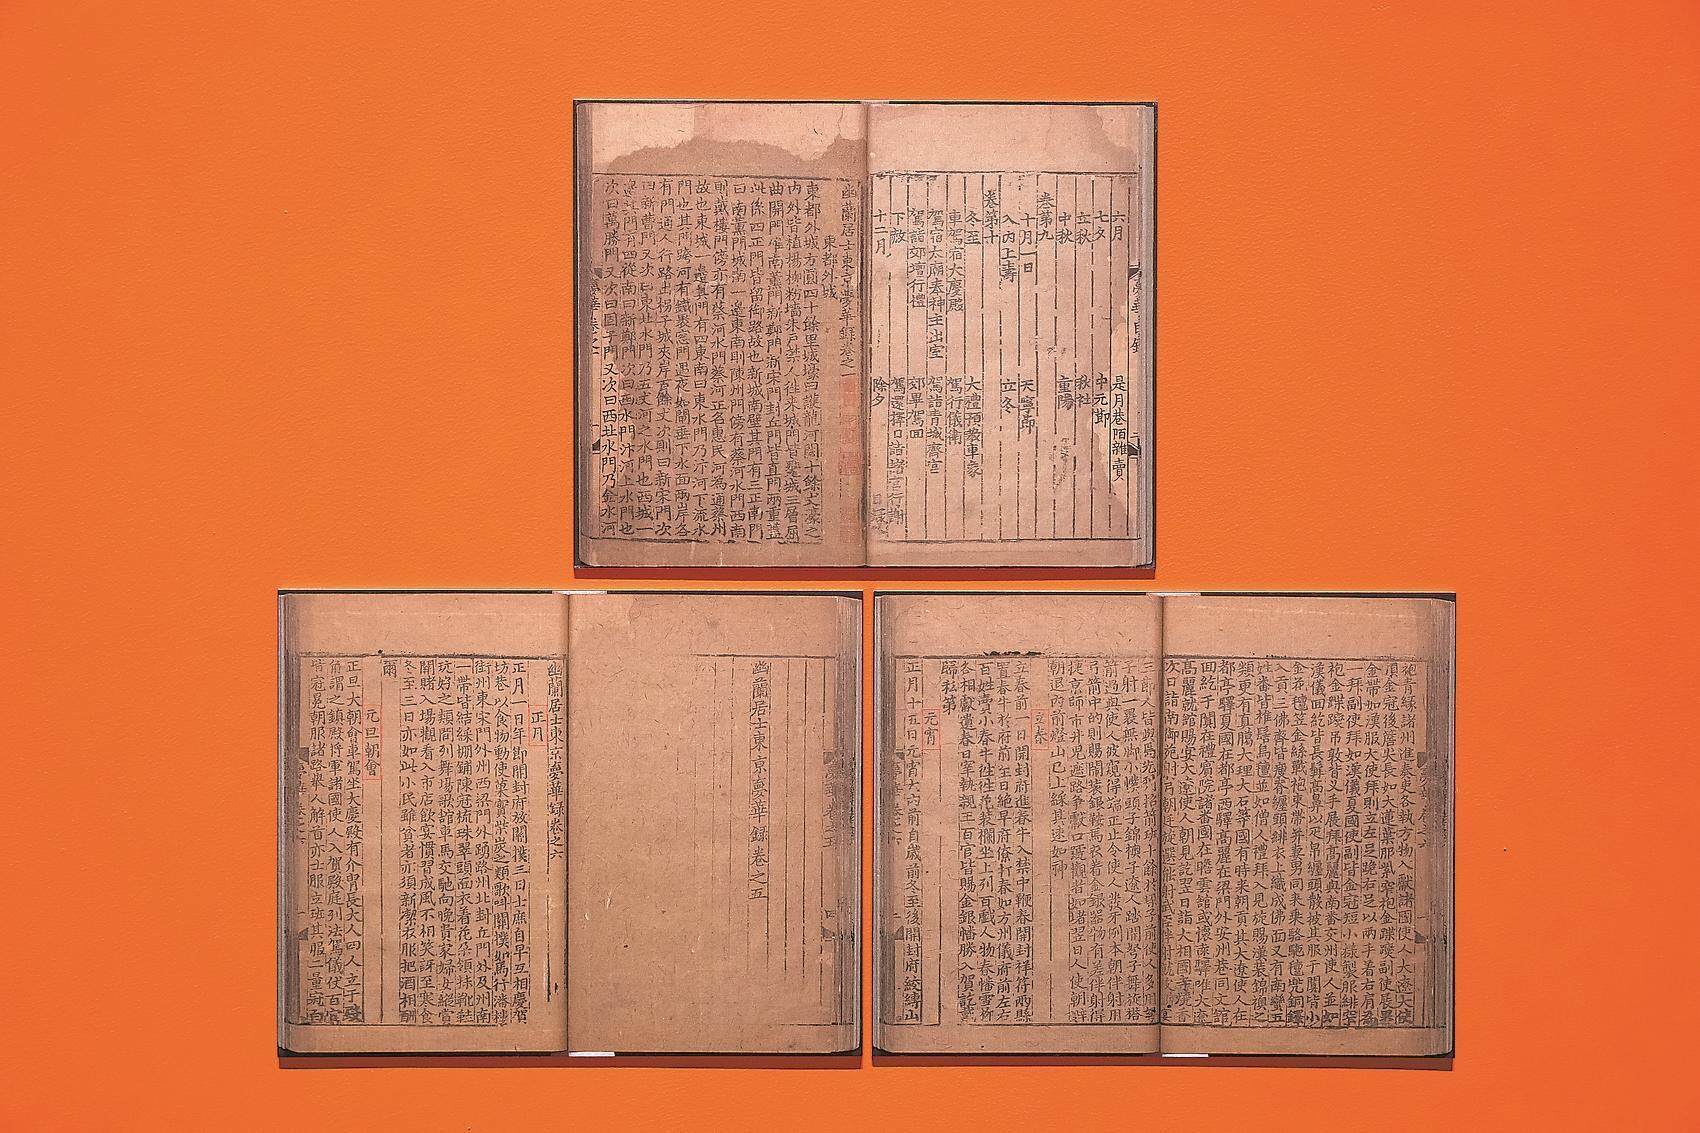 夢華目錄
六月 是月巷陌雜賣
七夕 中元節
立秋 秋社
中秋 重陽
卷第九
十月一日 天寧節
入內上壽 立冬
卷第十
冬至 大禮預教車象
車駕宿大慶殿 駕行儀衛
駕宿太廟奉神主出室 駕詣青城齋宮
駕詣郊壇行禮 郊畢駕回
下赦 駕還擇日詣諸宮行謝
十二月 除夕
目錄
幽蘭居士東京夢華錄卷之一
東都外城
東都外城方圓四十餘里城壕曰護龍河闊十餘丈壕之
內外皆植楊柳粉墻朱戶禁人往來城門皆甕城三層屈
曲開門唯南薰門新鄭門新宋門封丘門皆直門兩重蓋
此係四正門皆留御路故也新城南壁其門有三正南門
曰南薰門城南一邊東南則陳州門傍有蔡河水門西南
則戴樓門傍亦有蔡河水門蔡河正名惠民河為通蔡州
故也東城一邊其門有四東南曰東水門乃汴河下流水
門也其門跨河有鐵裹窗門遇夜如閘垂下水面兩岸各
有門通人行路出拐子城夾岸百餘丈次則曰新宋門次
曰新曹門又次曰東北水門乃五丈河之水門也西城一
邊其門有四從南曰新鄭門次曰西水門汴河上水門也
次曰萬勝門又次曰固子門又次曰西北水門乃金水河
幽蘭居士東京夢華錄卷之五
幽蘭居士東京夢華錄卷之六
正月
正月一日年節開封府放關撲三日士庶自早互相慶賀
坊巷以食物動使果實柴炭之類歌叫關撲如馬行潘樓
街州東宋門外州西梁門外踴路州北封丘門外及州南
一帶皆結綵棚鋪陳冠梳珠翠頭面衣着花朵領抹靴鞋
玩好之類間列舞場歌館車馬交馳向晚貴家婦女縱賞
關賭入場觀看入市店飲宴慣習成風不相笑訝至寒食
冬至三日亦如此小民雖貧者亦須新潔衣服把酒相酬
爾
元旦朝會
正旦大朝會車駕坐大慶殿有介冑長大人四人立于殿
角謂之鎮殿將軍諸國使人入賀殿庭列法駕儀仗百官
皆冠冕朝服諸路舉人解首亦士服立班其服二量冠白
袍青緣諸州進奏吏各執方物入獻諸國使人大遼大使
頂金冠後簷尖長如大蓮葉服紫窄袍金蹀躞副使展裹
金帶如漢服大使拜則立左足跪右足以兩手着右肩為
一拜副使拜如漢儀夏國使副皆金冠短小樣製服緋窄
袍金蹀躞吊敦背叉手展拜高麗與南番交州使人並如
漢儀回紇皆長髯高鼻以疋帛纏頭散披其服于闐皆小
金花氈笠金絲戰袍束帶并妻男同來乘駱駝氈兜銅鐸
入貢三佛齊皆瘦脊纏頭緋衣上織成佛面又有南蠻五
姓番皆椎髻烏氈並如僧人禮拜入見旋賜漢裝錦襖之
類更有真臘大理大石等國有時來朝貢其大遼使人在
都亭驛夏國在都亭西驛高麗在梁門外安州巷同文館
回紇于闐在禮賓院諸番國在瞻雲館或懷遠驛唯大遼
高麗就館賜宴大遼使人朝見訖翌日詣大相國寺燒香
次日詣南御苑射弓朝廷旋選能射武臣伴射就彼賜宴
三節人皆與焉先列招箭班十餘於垛子前使人多用弩
子射一裹無腳小幞頭子錦襖子遼人踏開弩子舞旋搭
箭過與使人彼窺得端正止令使人發牙例本朝伴射用
弓箭中的則賜鬧裝銀鞍馬衣着金銀器物有差伴射得
捷京師市井兒遮路爭獻口號觀者如堵翌日人使朝辭
朝退內前燈山已上綵其速如神
立春
立春前一日開封府進春牛入禁中鞭春開封祥符兩縣
置春牛於府前至日絕早府僚打春如方州儀府前左右
百姓賣小春牛往往花裝欄坐上列百戲人物春幡雪柳
各相獻遺春日宰執親王百官皆賜金銀幡勝入賀訖戴
歸私第
元宵
正月十五日元宵大內前自歲前冬至後開封府絞縛山